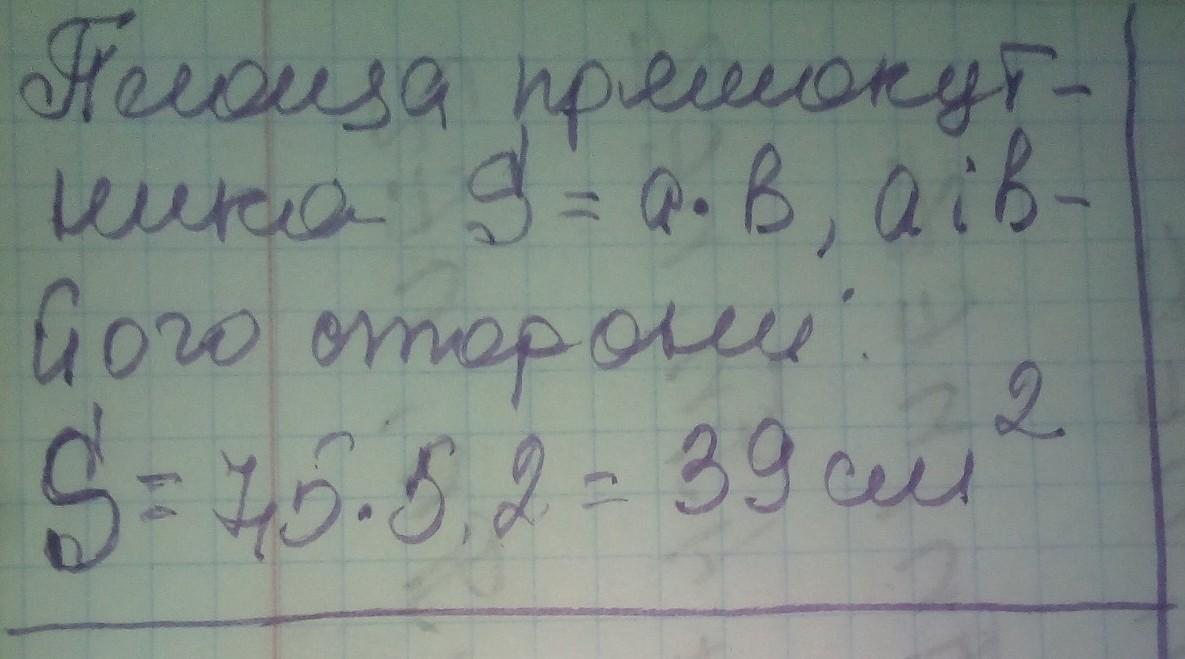 Площа прямокут-
ника S = a·в, a і в-
його сторони.
S = 7,5·5,2 = 39 см²